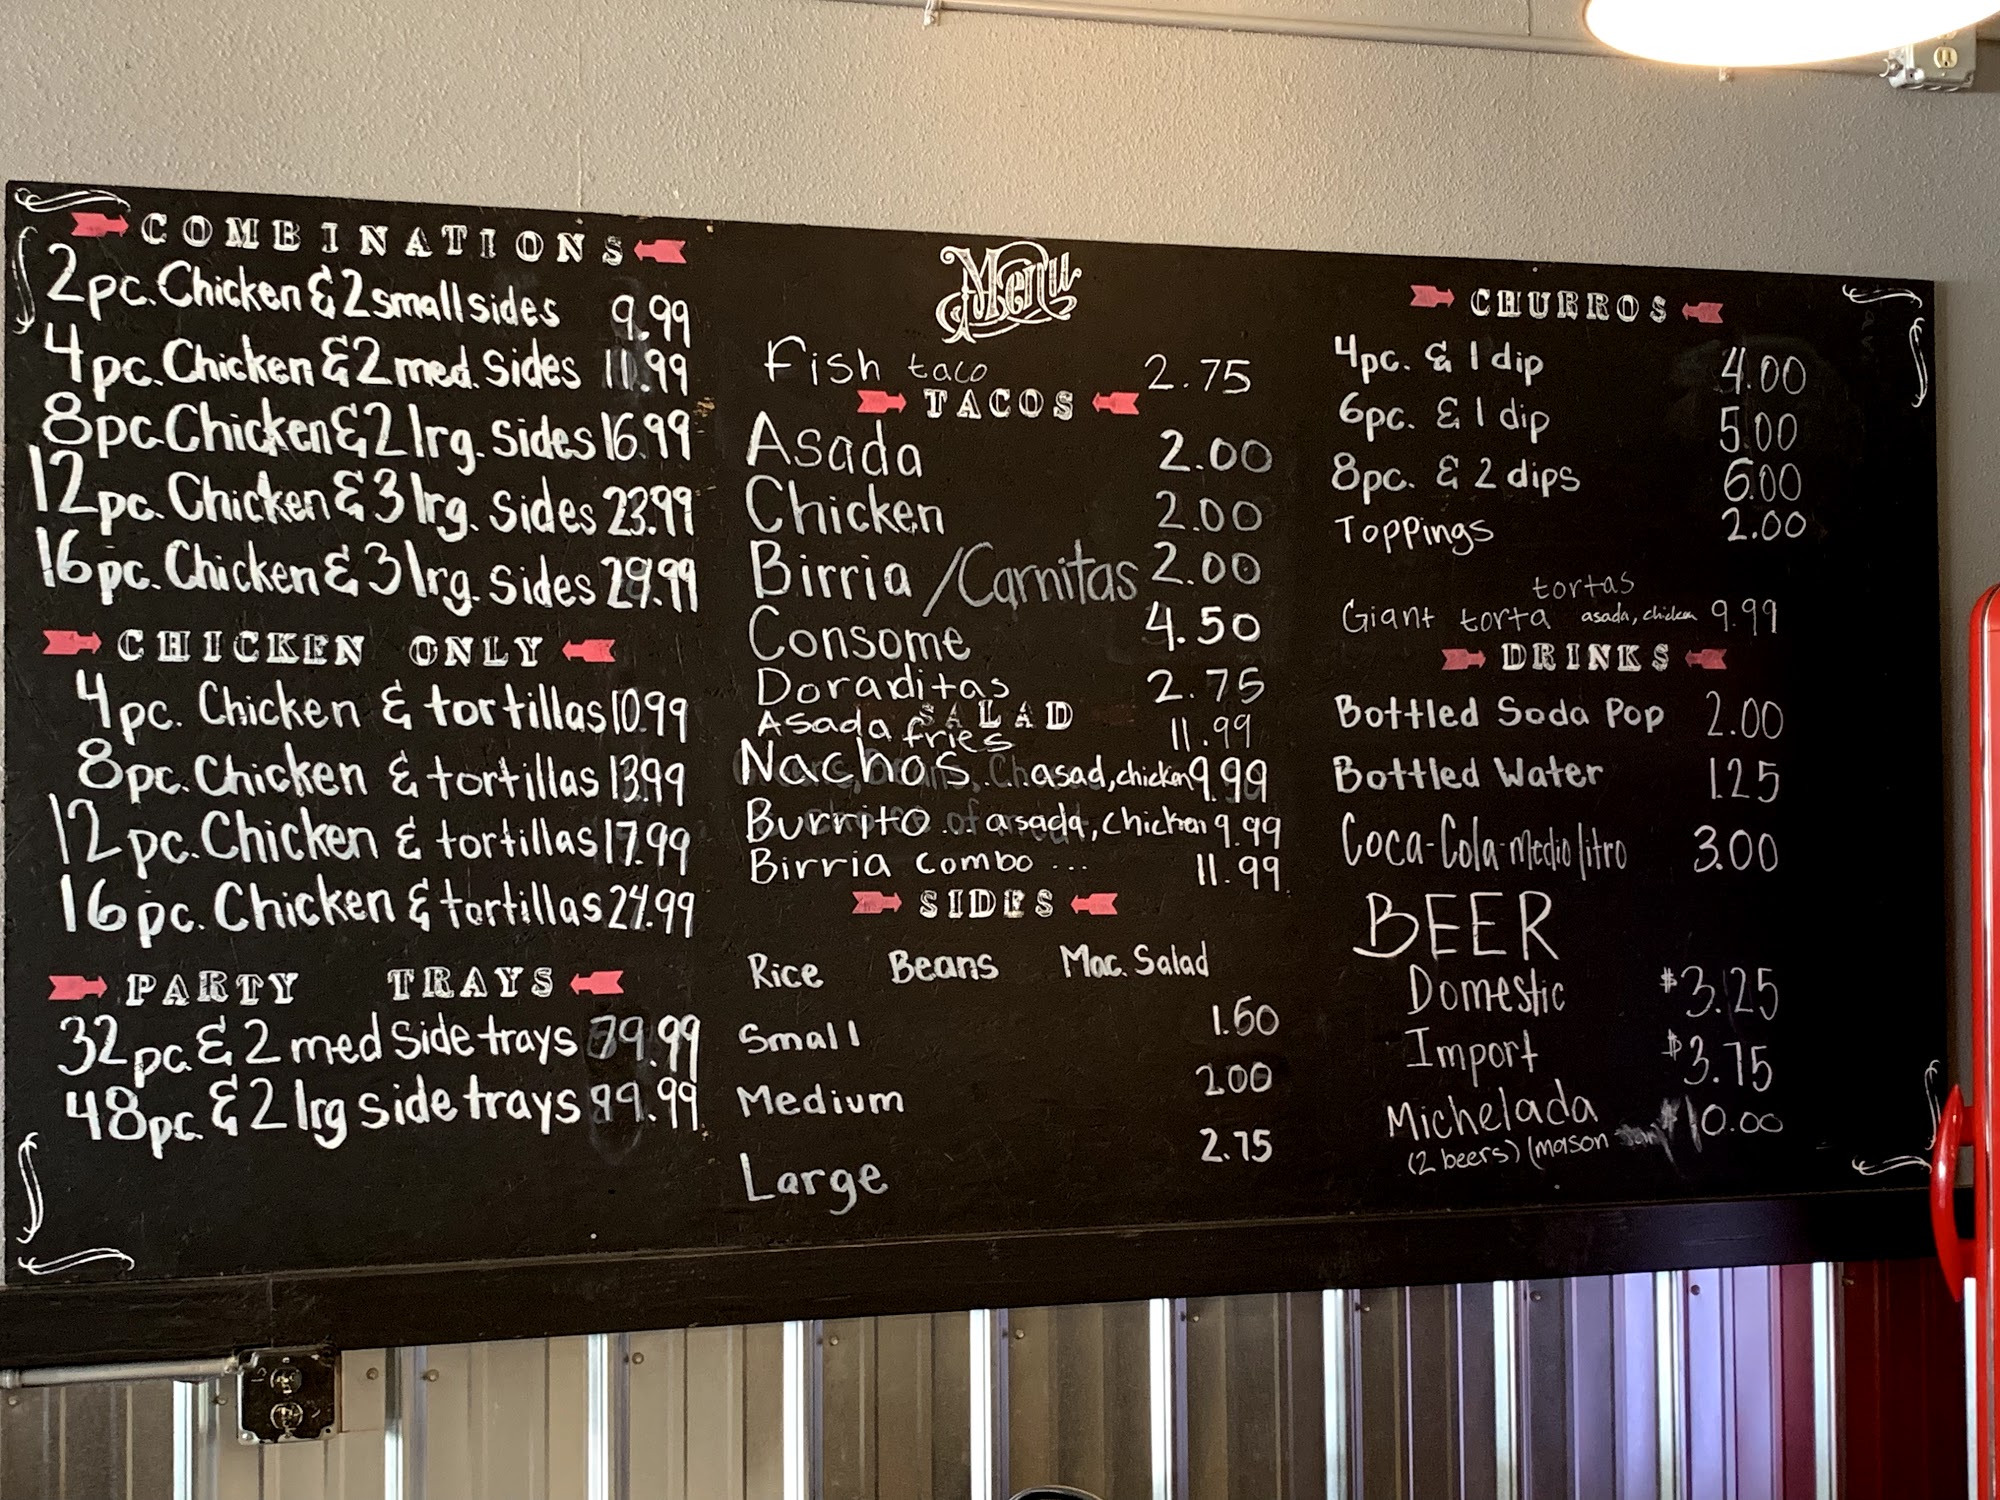 COMBINATIONS
2pc. Chicken & 2 small sides 9.99
4pc. Chicken & 2 med. sides 11.99
8pc Chicken & 2 lrg. sides 16.99
12pc. Chicken & 3 lrg. sides 23.99
16pc. Chicken & 3 lrg. sides 29.99
CHICKEN ONLY
4pc. Chicken & tortillas 10.99
8pc. Chicken & tortillas 13.99
12pc. Chicken & tortillas 17.99
16pc. Chicken & tortillas 24.99
PARTY TRAYS
32pc. & 2 med side trays 79.99
48pc. & 2 lrg side trays 99.99
Menu
Fish taco 2.75
TACOS
Asada 2.00
Chicken 2.00
Birria /Carnitas 2.00
Consome 4.50
Doraditas 2.75
SALAD
Asada fries 11.99
Nachos.. asad, chicken 9.99
Burrito... asada, chicken 9.99
Birria combo ... 11.99
SIDES
Rice Beans Mac. Salad
Small 1.50
Medium 2.00
Large 2.75
CHURROS
4pc. & 1 dip 4.00
6pc. & 1 dip 5.00
8pc. & 2 dips 6.00
Toppings 2.00
tortas
Giant torta asada, chicken 9.99
DRINKS
Bottled Soda Pop 2.00
Bottled Water 1.25
Coca-Cola-Medio litro 3.00
BEER
Domestic $3.25
Import $3.75
Michelada $10.00
(2 beers) (mason